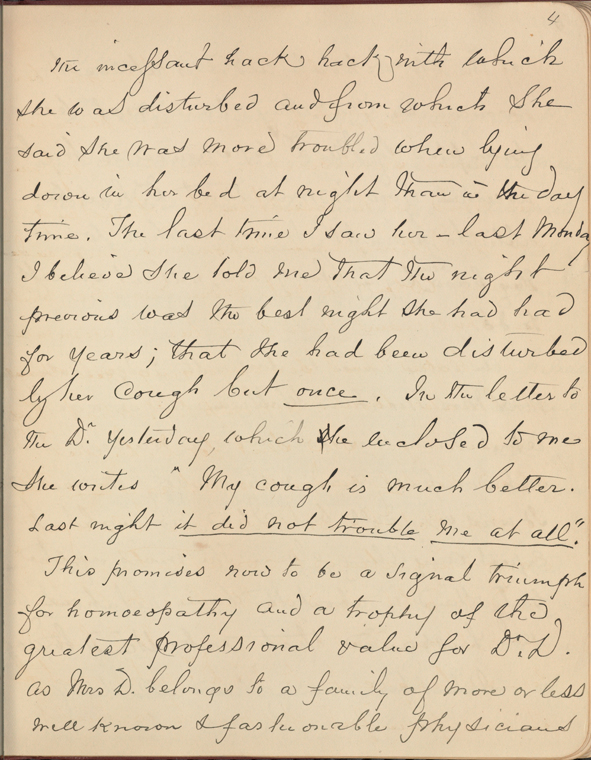 4
the incessant hack hack, with which
she was disturbed and from which she
said she was more troubled when lying
down in her bed at night than in the day
time. The last time I saw her – last Monday
I believe she told me that the night
previous was the best night she had had
for years; that she had been disturbed
by her cough but once. In the letter to
the Dr. yesterday, which she enclosed to me
she writes "My cough is much better.
Last night it did not trouble me at all."
This promises now to be a signal triumph
for homoeopathy and a trophy of the
greatest professional value for Dr. D.
as Mrs D. belongs to a family of more or less
well known & fashionable physicians